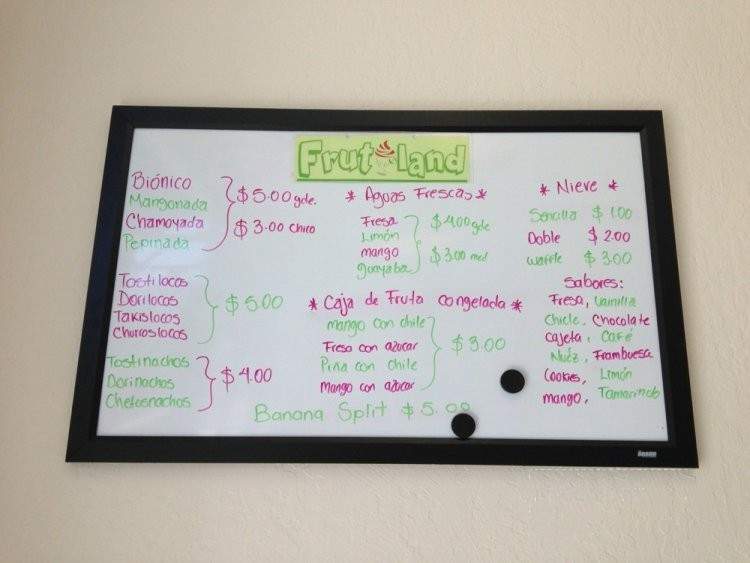 Frutiland
Biónico
Mangonada
Chamoyada
Pepinada
$5.00 gde.
$3.00 chico
Tostilocos
Dorilocos
Takislocos
Churroslocos
$5.00
Tostinachos
Dorinachos
Chetosnachos
$4.00
* Aguas Frescas *
Fresa
Limón
mango
guayaba
$4.00 gde
$3.00 med
* Caja de Fruta congelada *
mango con chile
Fresa con azucar
Piña con chile
Mango con azucar
$3.00
Banana Split $5.00
* Nieve *
Sencilla $1.00
Doble $2.00
Waffle $3.00
Sabores:
Fresa, Vainilla
Chicle, Chocolate
cajeta, Café
Nuéz, Frambuesa
Cookies, Limón
mango, Tamarindo